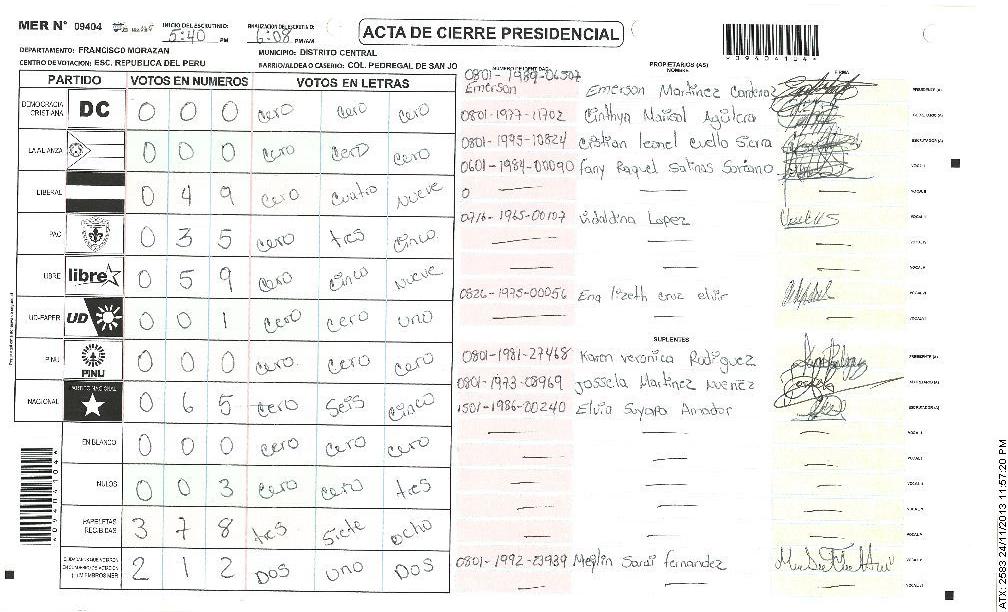 MER N° 09404 INICIO DEL ESCRUTINIO: 5:40 PM FINALIZACION DEL ESCRUTINIO: 6:08 PM/AM
ACTA DE CIERRE PRESIDENCIAL
*09404104*
DEPARTAMENTO: FRANCISCO MORAZAN MUNICIPIO: DISTRITO CENTRAL
CENTRO DE VOTACION: ESC. REPUBLICA DEL PERU BARRIO/ALDEA O CASERIO: COL. PEDREGAL DE SAN JO
PARTIDO VOTOS EN NUMEROS VOTOS EN LETRAS
DEMOCRACIA CRISTIANA DC 0 0 0 cero cero cero
LA ALIANZA 0 0 0 cero cero cero
LIBERAL 0 4 9 cero cuatro nueve
PAC 0 3 5 cero tres cinco
LIBRE libre 0 5 9 cero cinco nueve
UD-FAPER UD 0 0 1 cero cero uno
PINU PINU 0 0 0 cero cero cero
NACIONAL PARTIDO NACIONAL 0 6 5 cero seis cinco
EN BLANCO 0 0 0 cero cero cero
NULOS 0 0 3 cero cero tres
PAPELETAS RECIBIDAS 3 7 8 tres siete ocho
CIUDADANOS QUE VOTARON 2 1 2 DOS uno DOS
NUMERO DE IDENTIDAD PROPIETARIOS (AS) NOMBRE FIRMA
0801-1989-06507 Emerson Emerson Martinez Cardenaz PRESIDENTE (A)
0801-1977-11702 Cinthya Marisol Aguilera SECRETARIO (A)
0801-1995-10824 Cristian leonel cuello Sierra ESCRUTADOR (A)
0601-1984-00090 fany Raquel Salinas Soriano VOCAL I
0
0716-1965-00107 Vidaldina Lopez
0826-1975-00056 Ena lizeth cruz elvir
SUPLENTES
0801-1981-27468 Karen veronica Rodriguez PRESIDENTE (A)
0801-1973-08969 Jossela Martinez Nuenez SECRETARIO (A)
1501-1986-00240 Elvia Suyapa Amador ESCRUTADOR (A)
0801-1992-23939 Meylin Saraí fernandez
*09404104*
ATX: 2583 24/11/2013 11:57:20 PM